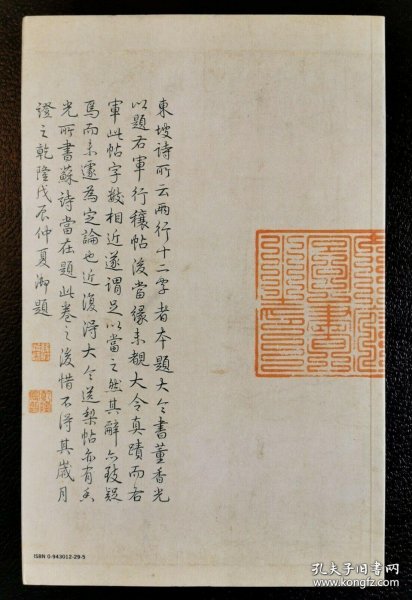 東坡詩所云兩行十二字者本題大令書董香光
以題右軍行穰帖後當緣未覩大令真蹟而右
軍此帖字數相近遂謂足以當之然其辭亦致疑
焉而未遽為定論也近復得大令送梨帖亦有香
光所書蘇詩當在題此卷之後惜不得其歲月
證之乾隆戊辰仲夏御題
ISBN 0-943012-29-5
孔夫子旧书网
www.kongfz.com